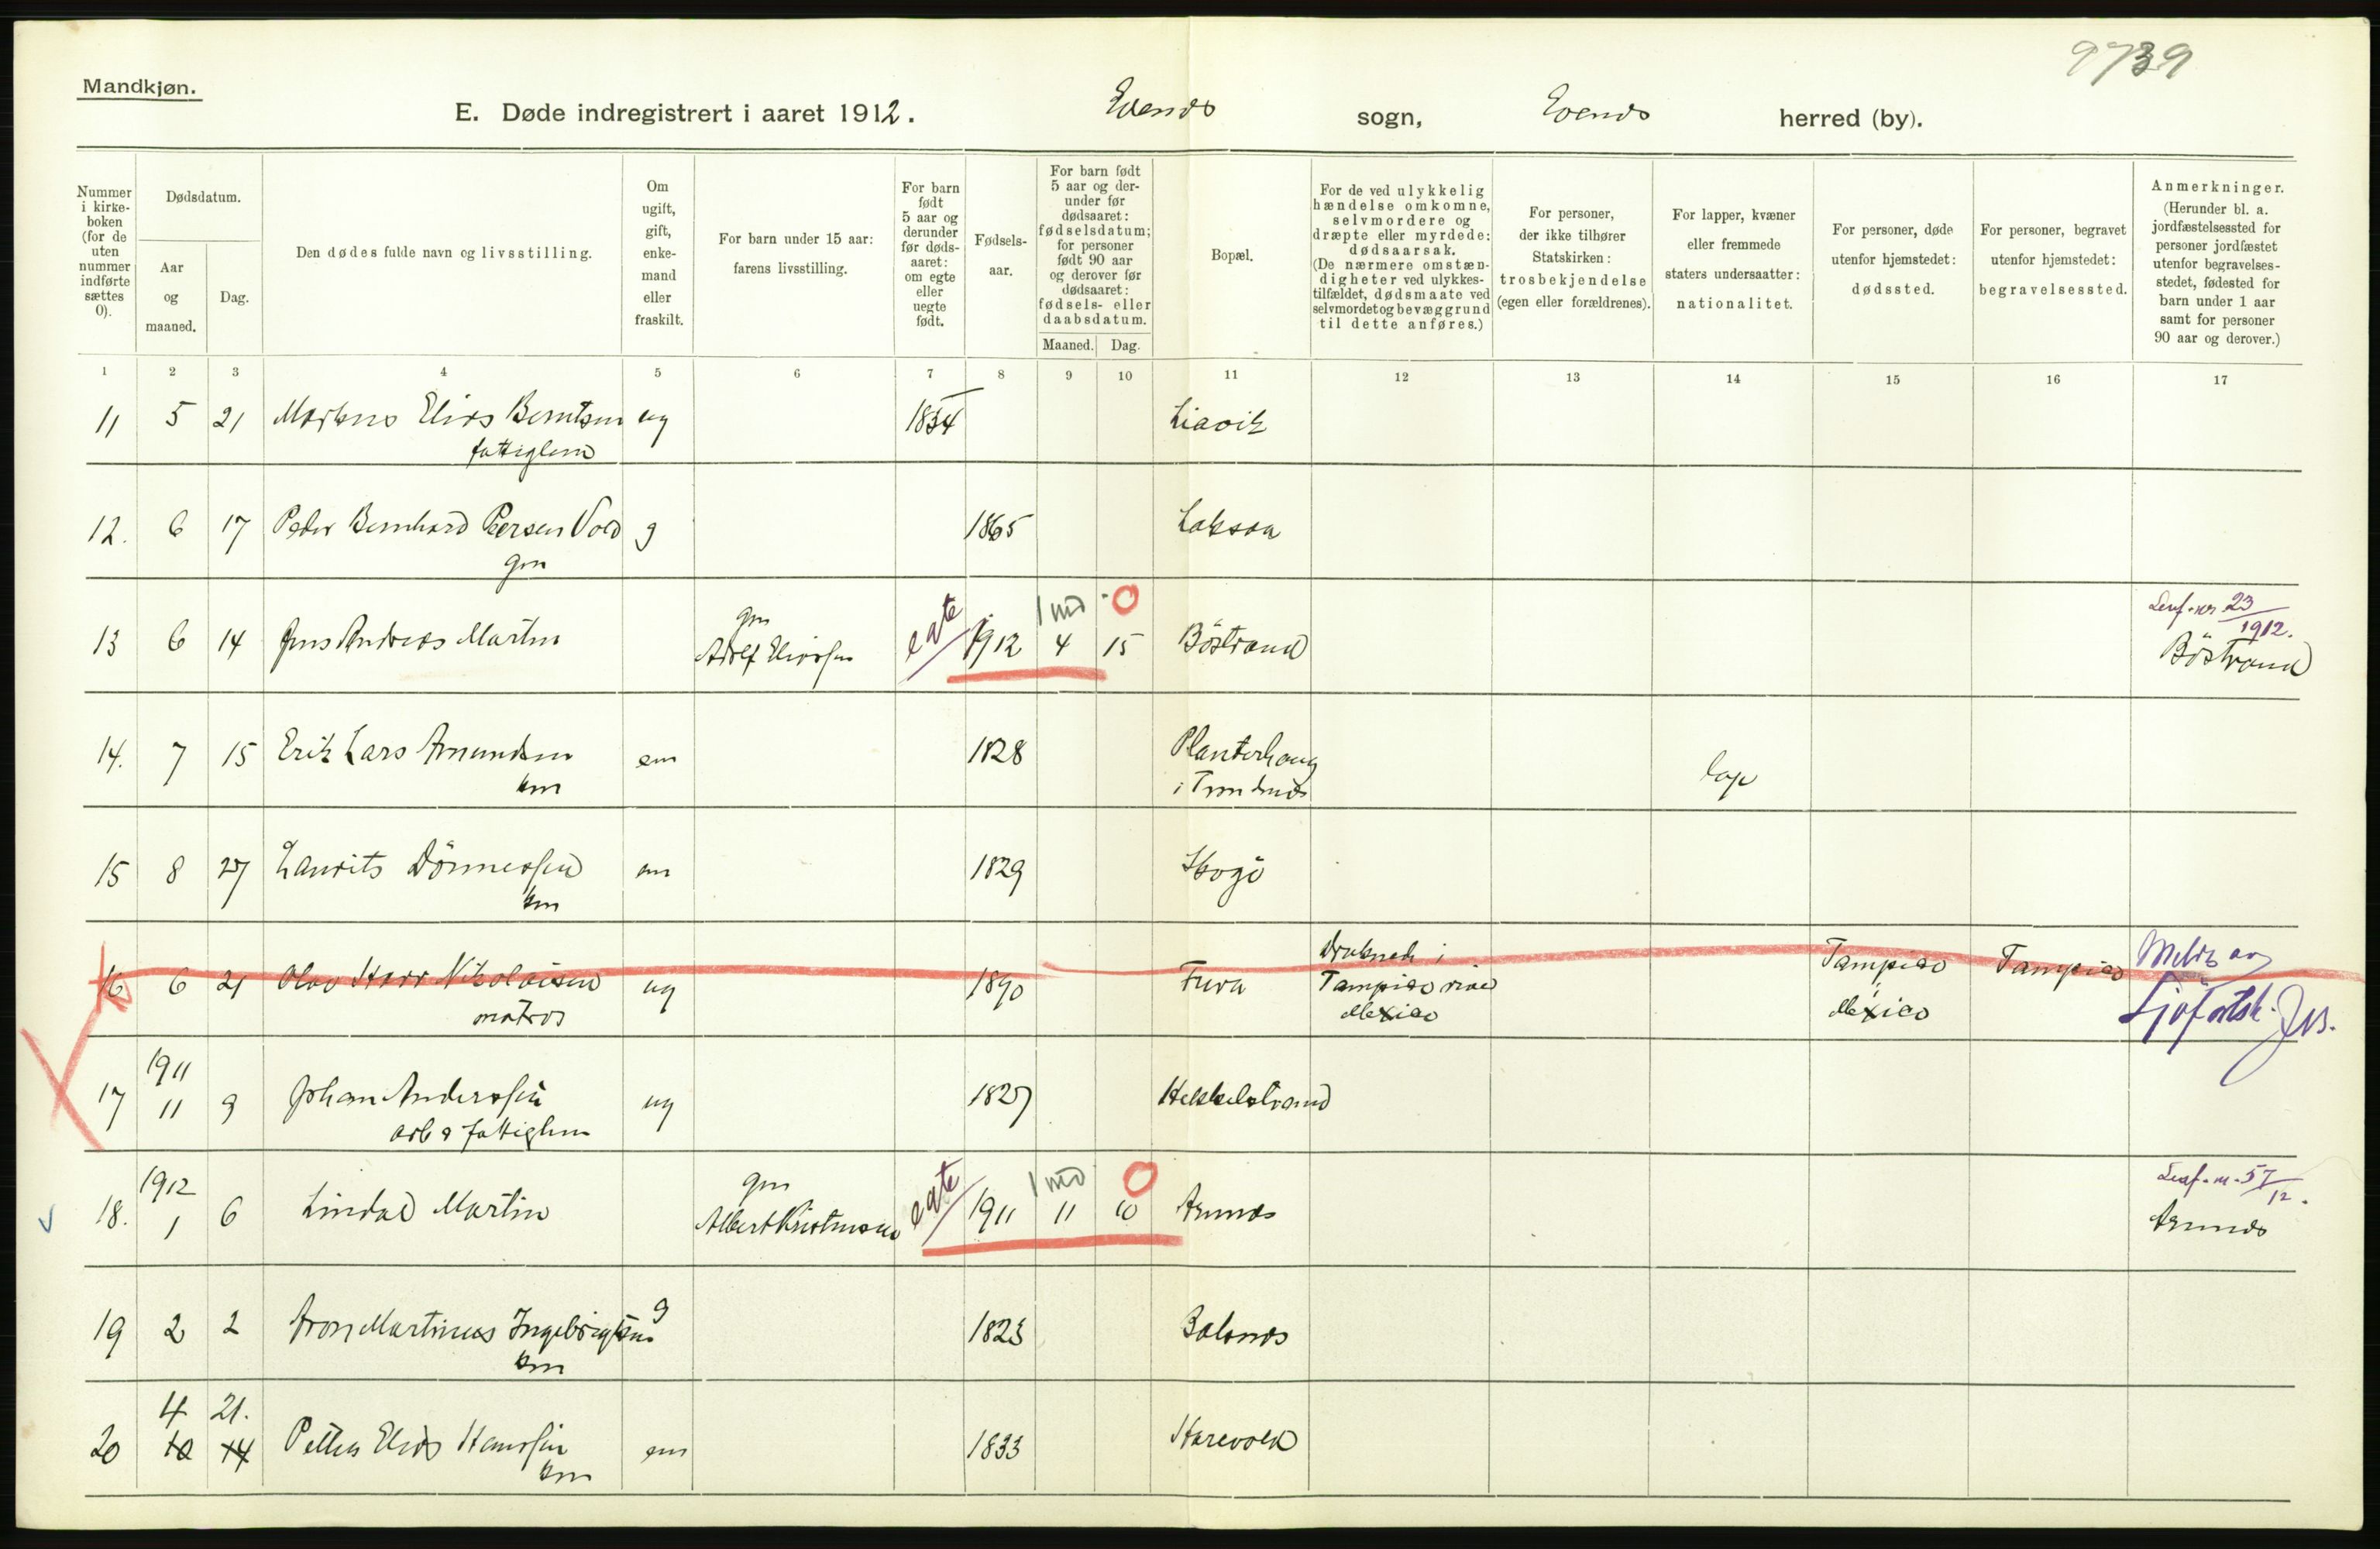 9739
Mandkjøn.
E. Døde indregistrert i aaret 1912. Evenes sogn, Evenes herred (by).
Nummer i kirkeboken (for de uten nummer indførte sættes 0).
Dødsdatum.
Aar og maaned.
Dag.
Den dødes fulde navn og livsstilling.
Om ugift, gift, enkemand eller fraskilt.
For barn under 15 aar: farens livsstilling.
For barn født 5 aar og derunder før dødsaaret: om egte eller uegte født.
Fødselsaar.
For barn født 5 aar og derunder før dødsaaret: fødselsdatum; for personer født 90 aar og derover før dødsaaret: fødsels- eller daabsdatum.
Maaned. Dag.
Bopæl.
For de ved ulykkelig hændelse omkomne, selvmordere og dræpte eller myrdede: dødsaarsak. (De nærmere omstændigheter ved ulykkestilfældet, dødsmaate ved selvmordet og bevæggrund til dette anføres.)
For personer, der ikke tilhører Statskirken: trosbekjendelse (egen eller forældrenes).
For lapper, kvæner eller fremmede staters undersaatter: nationalitet.
For personer, døde utenfor hjemstedet: dødssted.
For personer, begravet utenfor hjemstedet: begravelsessted.
Anmerkninger. (Herunder bl. a. jordfæstelsessted for personer jordfæstet utenfor begravelsesstedet, fødested for barn under 1 aar samt for personer 90 aar og derover.)
1 2 3 4 5 6 7 8 9 10 11 12 13 14 15 16 17
11 5 21 Markus Elias Berntsen ug 1834 Liavik
fattiglem
12. 6 17 Peder Bernhard Peersen Vold g 1865 Laksaa
gm
1 md 0 Levf. nr 23/1912.
13 6 14 Jens Andreas Martin gm Adolf Eliassen egte 1912 4 15 Böstrand Böstrand
14. 7 15 Erik Lars Amundsen em 1828 Planterhaug lap
km i
15 8 27 Laurits Dönnessen em 1829 Skogö
km
16 6 21 Olav Harr Nikolaisen ug 1890 Fura Druknet i Tampico river Mexico Tampico i Mexico Tampico Meldt av Sjöfartsk.
matros
1911
17 11 9 Johan Anderssen ug 1827 Hekkelstrand
arb & fattiglem
1912 1 md 0 Levf. nr. 57/12.
18. 1 6 Lindal Martin gm Albert Kristensen egte 1911 11 10 Annes Annes
19 2 2 Aron Martinus Ingebrigtsen g 1823 Balnes
km
4 21.
20 10 14 Petter Elias Hanssen em 1833 Harevold
km